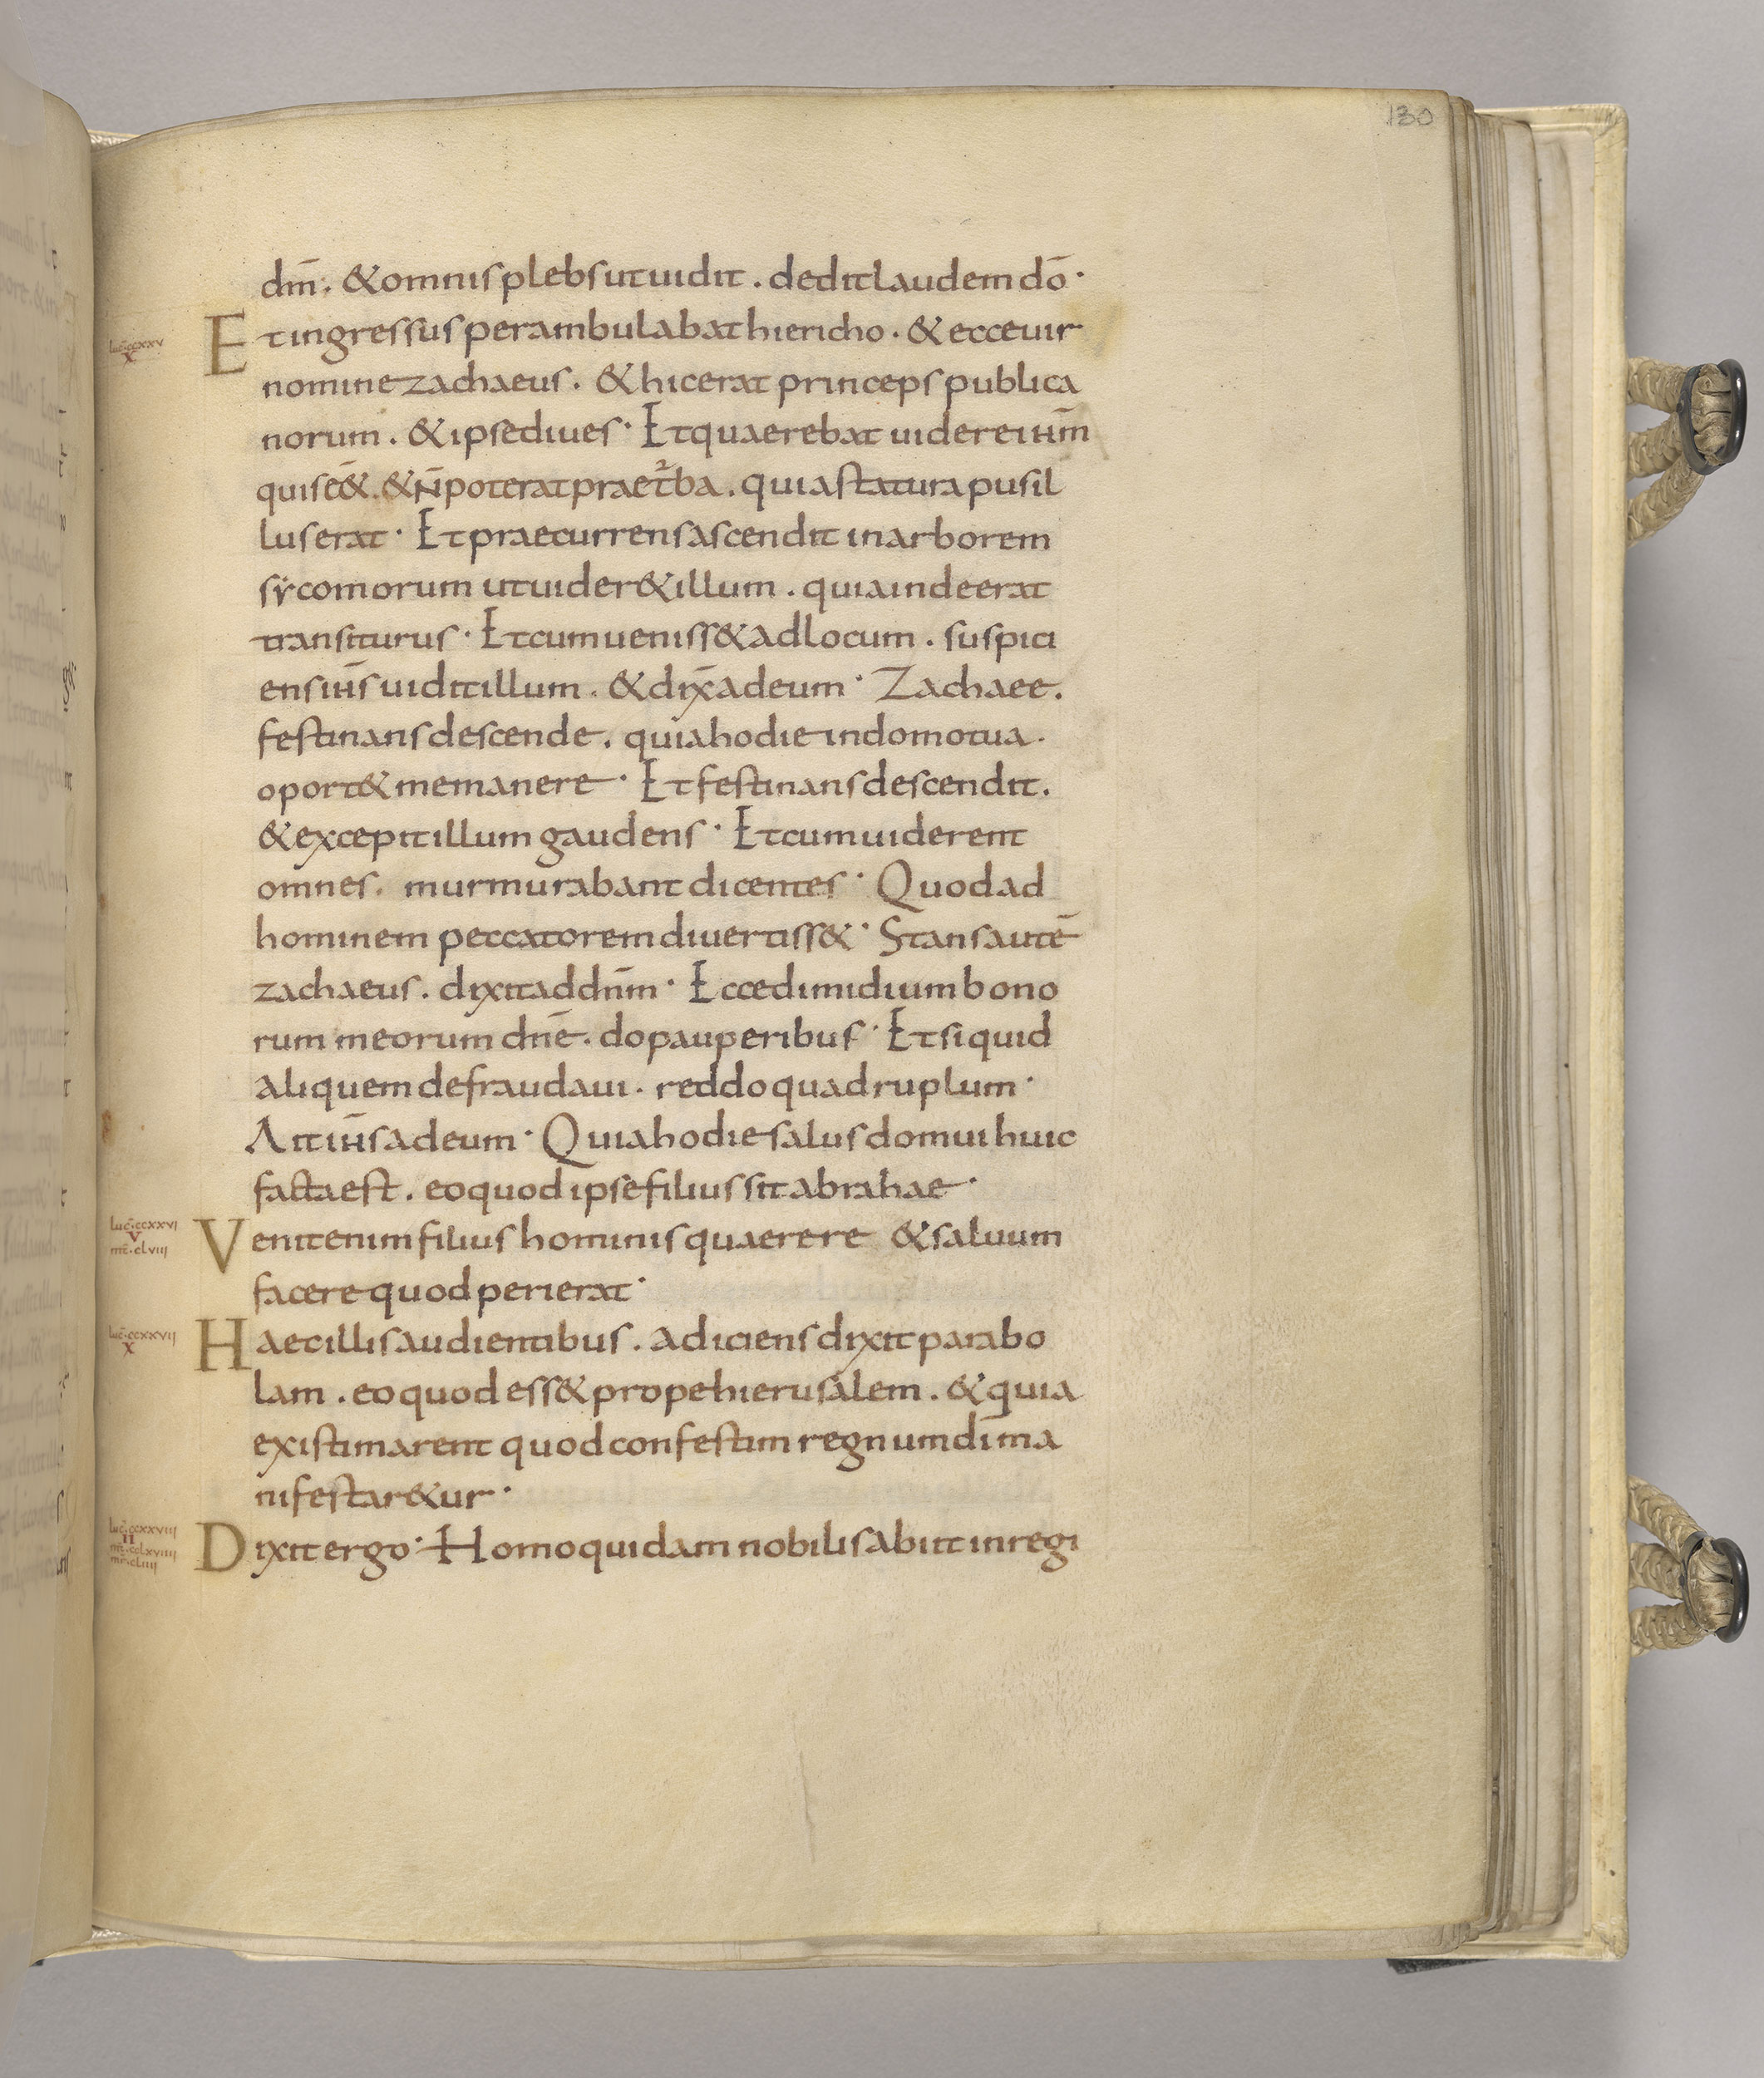 130
dm̄. & omnis plebs ut uidit. dedit laudem dō.
Et ingressus perambulabat hiericho. & ecce uir
nomine zachaeus. & hic erat princeps publica
norum. & ipse diues. Et quaerebat uidere ihm̄
quis eēt. & n̄ poterat prae t̄ba. quia statura pusil
lus erat. Et praecurrens ascendit in arborem
sẏcomorum ut uider& illum. quia inde erat
transiturus. Et cum ueniss& ad locum. suspici
ens ihs̄ uidit illum. & dix̄ ad eum. Zachaee.
festinans descende. quia hodie in domo tua.
oport& me manere. Et festinans descendit.
& excepit illum gaudens. Et cum uiderent
omnes. murmurabant dicentes. Quod ad
hominem peccatorem diuertiss&. Stans autē
zachaeus. dixit ad dnm̄. Ecce dimidium bono
rum meorum dnē. do pauperibus. Et si quid
aliquem defraudaui. reddo quadruplum.
Ait ihs̄ ad eum. Quia hodie salus domui huic
facta est. eo quod ipse filius sit abrahae.
Venit enim filius hominis quaerere & saluum
facere quod perierat.
Haec illis audientibus. adiciens dixit parabo
lam. eo quod ess& prope hierusalem. & quia
existimarent quod confestim regnum dī ma
nifestar&ur.
Dixit ergo. Homo quidam nobilis abiit in regi
luc̄. ccxxv
x
luc̄. ccxxvi
v
mc̄. clviii
luc̄. ccxxvii
x
luc̄. ccxxviii
ii